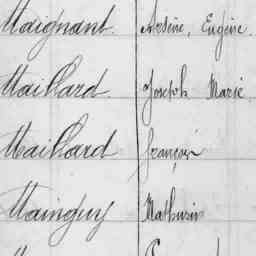 Maignant. Arsène, Eugène.
Maillard. Joseph Marie
Maillard François
Mainguy Mathurin